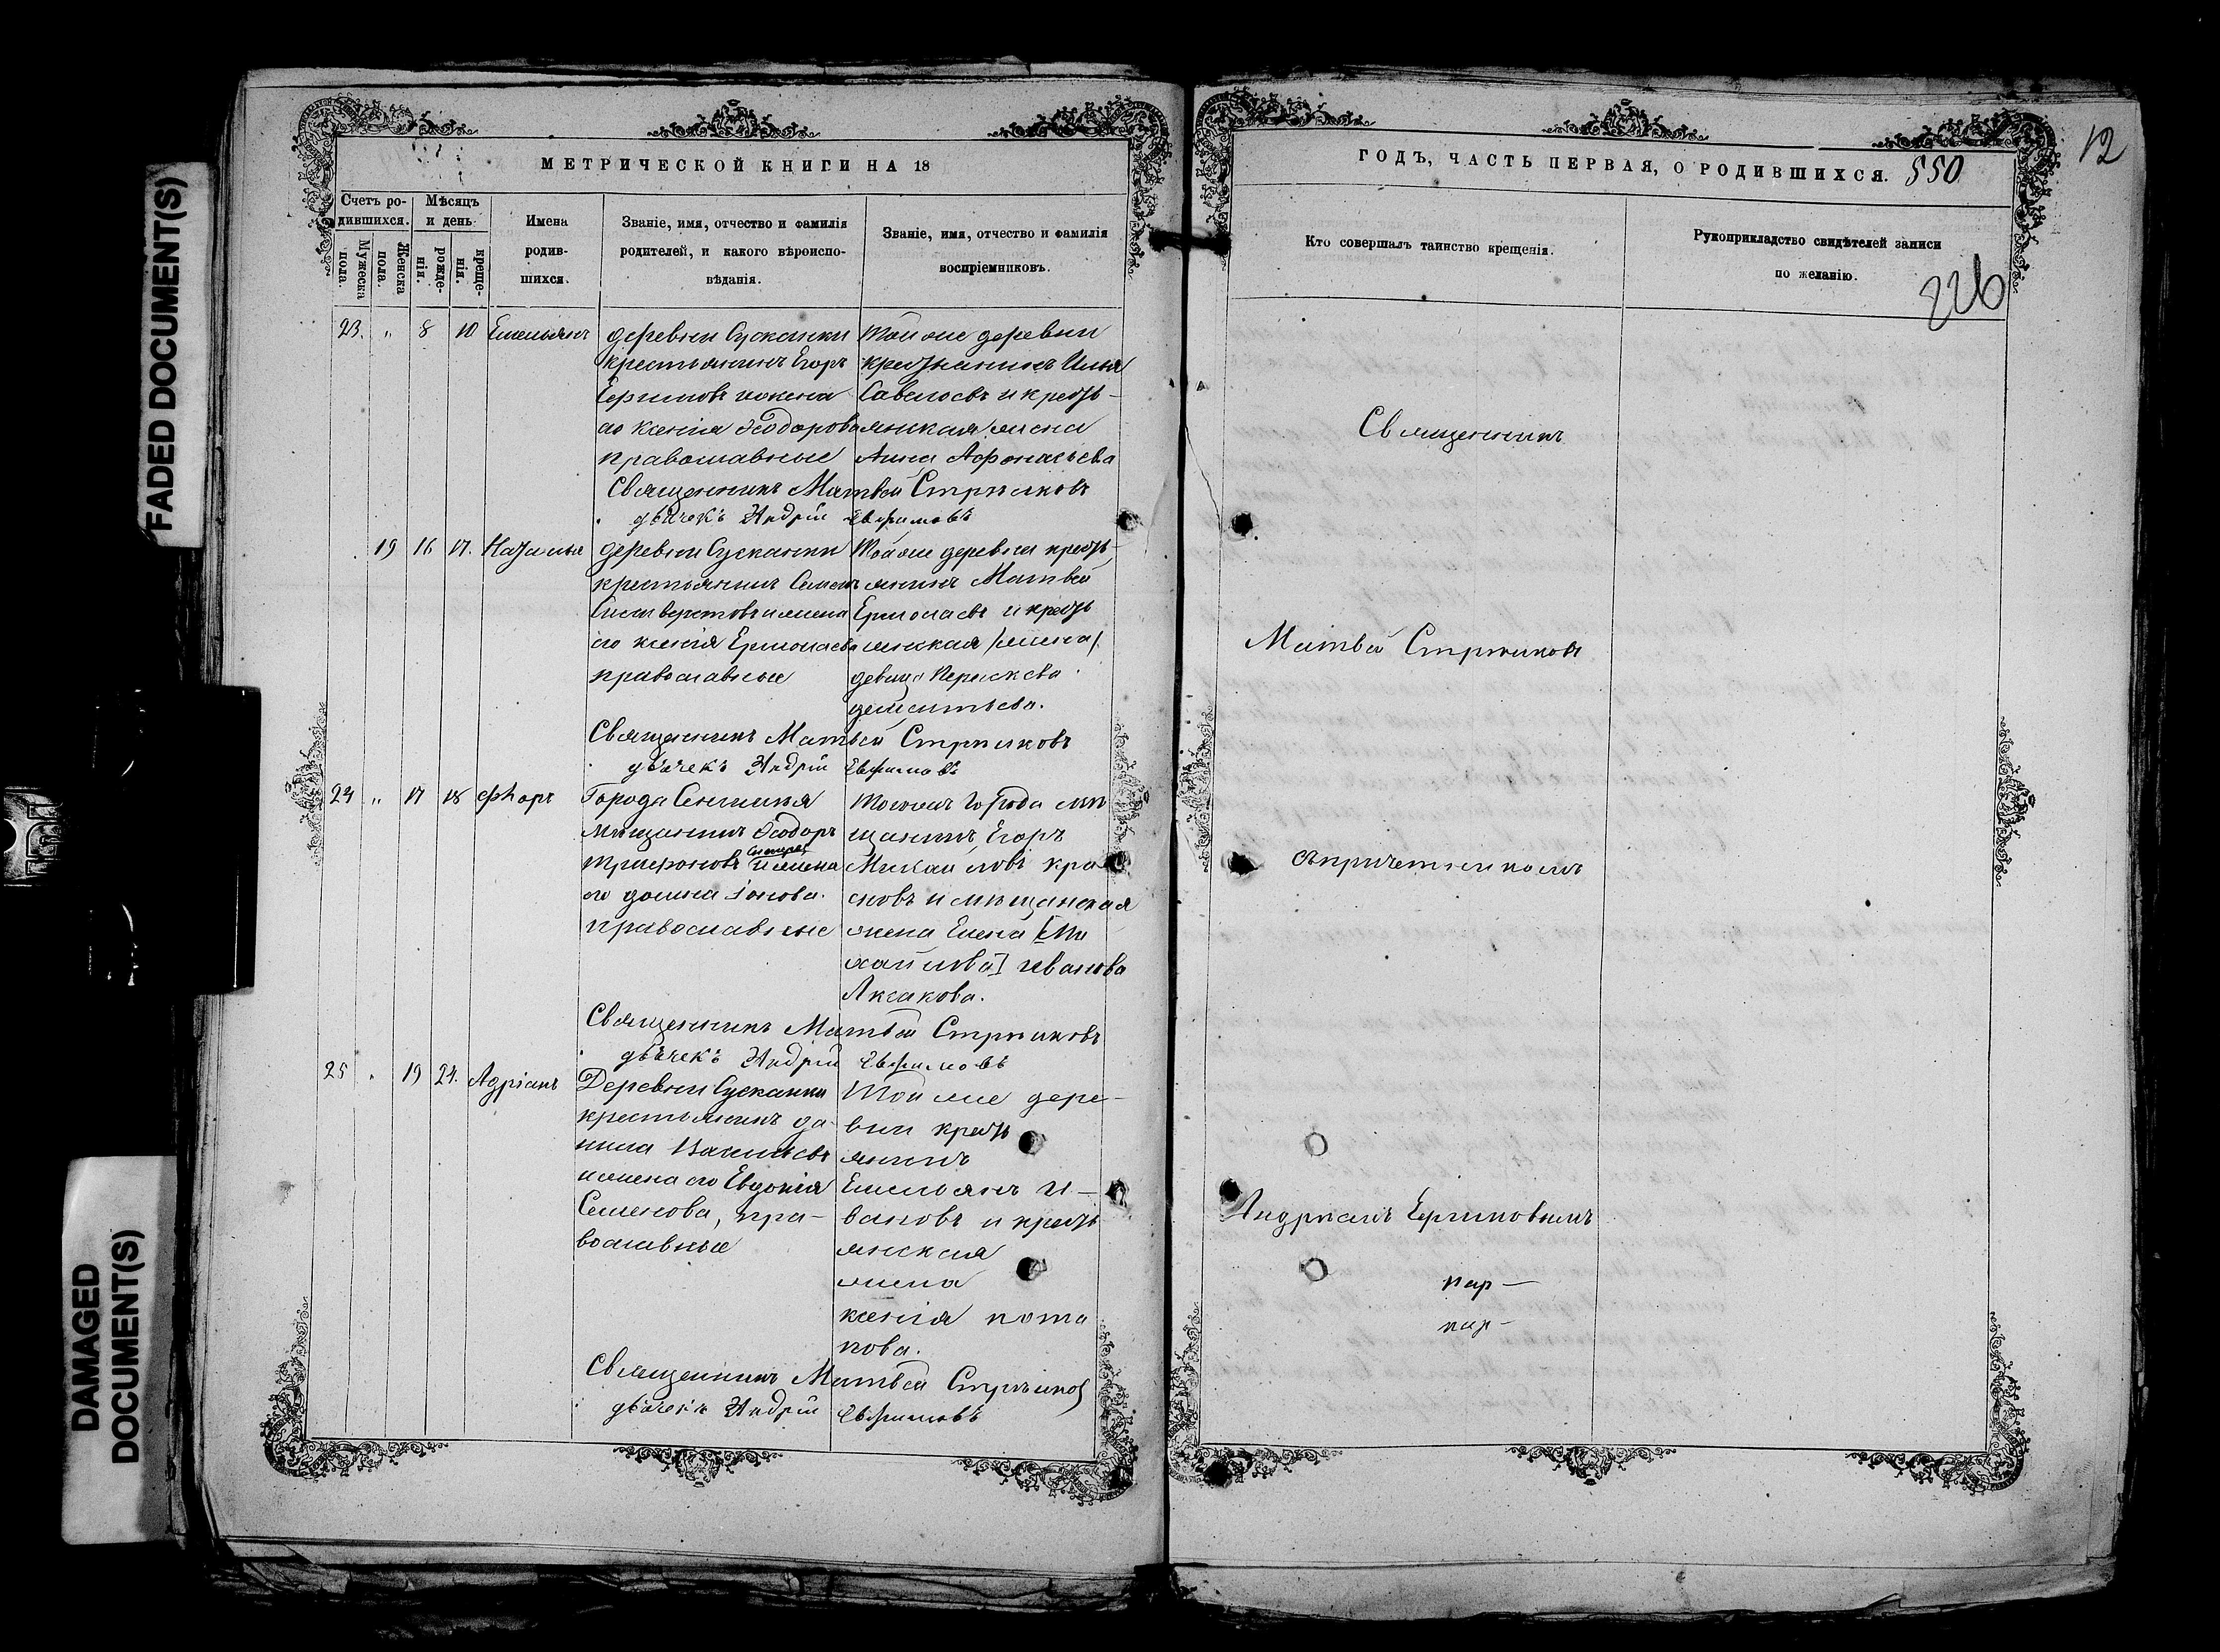 FADED DOCUMENT(S)
DAMAGED
DOCUMENT(S)
МЕТРИЧЕСКОЙ КНИГИ НА 18
Счетъ ро-
дившихся.
Мужеска
пола.
Женска
пола.
Мѣсяцъ
и день
рожде-
нія.
креще-
нія.
Имена
родив-
шихся.
Званіе, имя, отчество и фамилія
родителей, и какого вѣроиспо-
вѣданія.
Званіе, имя, отчество и фамилія
воспріемниковъ.
23. " 8 10 Емельянъ
деревни Сусканки
крестьянинъ Егоръ
Ефимовъ и жена
его Ксенія Ѳеодорова
православные
Той же деревни
Илья
Савельевъ и
янская жена
Анна Афонасьева
Священникъ Матвей Стрѣлковъ
дьячекъ Андрій Евфимовъ
19 16 17. Наталья
деревни Сусканки
крестьянинъ Семенъ
Сильверстовъ и жена
его Ксенія Ермолаева
православные
Той же деревни
янинъ Матвей
Ермолаевъ и
янская (жена)
девица
дементьева.
Священникъ Матвей Стрѣлковъ
дьячекъ Андрій Евфимовъ
24 " 17 18 Фролъ
Города
мѣщанинъ Ѳеодоръ
Трифоновъ и жена
его Іонова.
православные
того же города мѣ
щанинъ Егоръ
Михайловъ Кра
сновъ и мѣщанская
жена Елена [Ми
хайлова] Иванова
Аксакова.
Священникъ Матвей Стрѣлковъ
дьячекъ Андрій Евфимовъ
25 " 19 24. Адріанъ
Деревни Сусканки
крестьянинъ Да
нила Васильевъ
и жена его Евдокія
Семенова, пра-
вославные
Той же дере-
вни
янинъ
Емельянъ И-
вановъ и
янская
жена
Ксенія Пота
пова.
Священникъ Матвей Стрѣлковъ
дьячекъ Андрій Евфимовъ
ГОДЪ, ЧАСТЬ ПЕРВАЯ, О РОДИВШИХСЯ. 550
12
Кто совершалъ таинство крещенія.
Рукоприкладство свидѣтелей записи
по желанію.
226
Священникъ
Матвей Стрѣлковъ
съ причетникомъ
Андреемъ Ефимовымъ